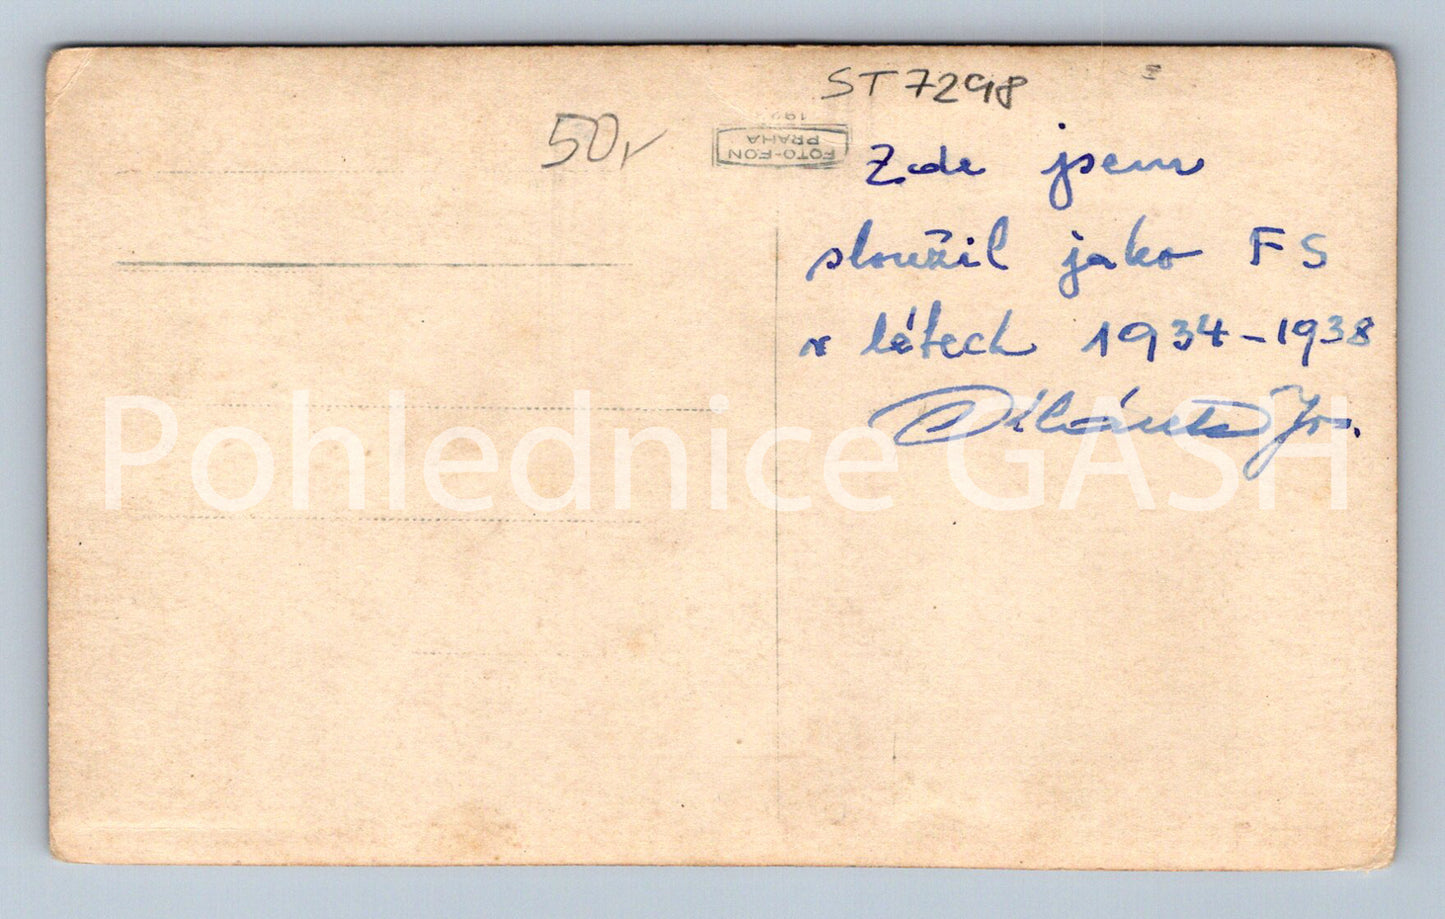 ST 7298
50,-
FOTO-FON
PRAHA
Zde jsem
sloužil jako FS
v létech 1934-1938
Jos.
Pohlednice GASH